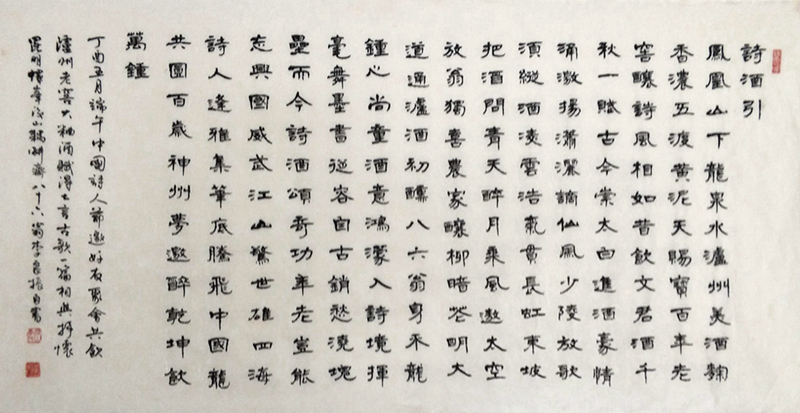 詩酒引
鳳凰山下龍泉水瀘州美酒麴
香濃五渡黃泥天賜寶百年老
窖釀詩風相如昔飲文君酒千
秋一賦古今崇太白進酒豪情
涌激揚瀟灑謫仙風少陵放歌
須縱酒凌雲浩氣貫長虹東坡
把酒問青天醉月乘風遨太空
放翁獨喜農家釀柳暗花明大
道通瀘酒初醺八六翁身不龍
鍾心尚童酒意鴻濛入詩境揮
毫舞墨書從容自古銷愁澆塊
壘而今詩酒頌奇功年老豈能
忘興國威武江山驚世雄四海
詩人逢雅集筆底騰飛中國龍
共圓百歲神州夢邀醉乾坤飲
萬鍾
丁酉五月端午中國詩人節邀好友聚會共飲
瀘州老窖六釉酒賦得七言古歌一篇相與抒懷
昆明八十六翁李自書